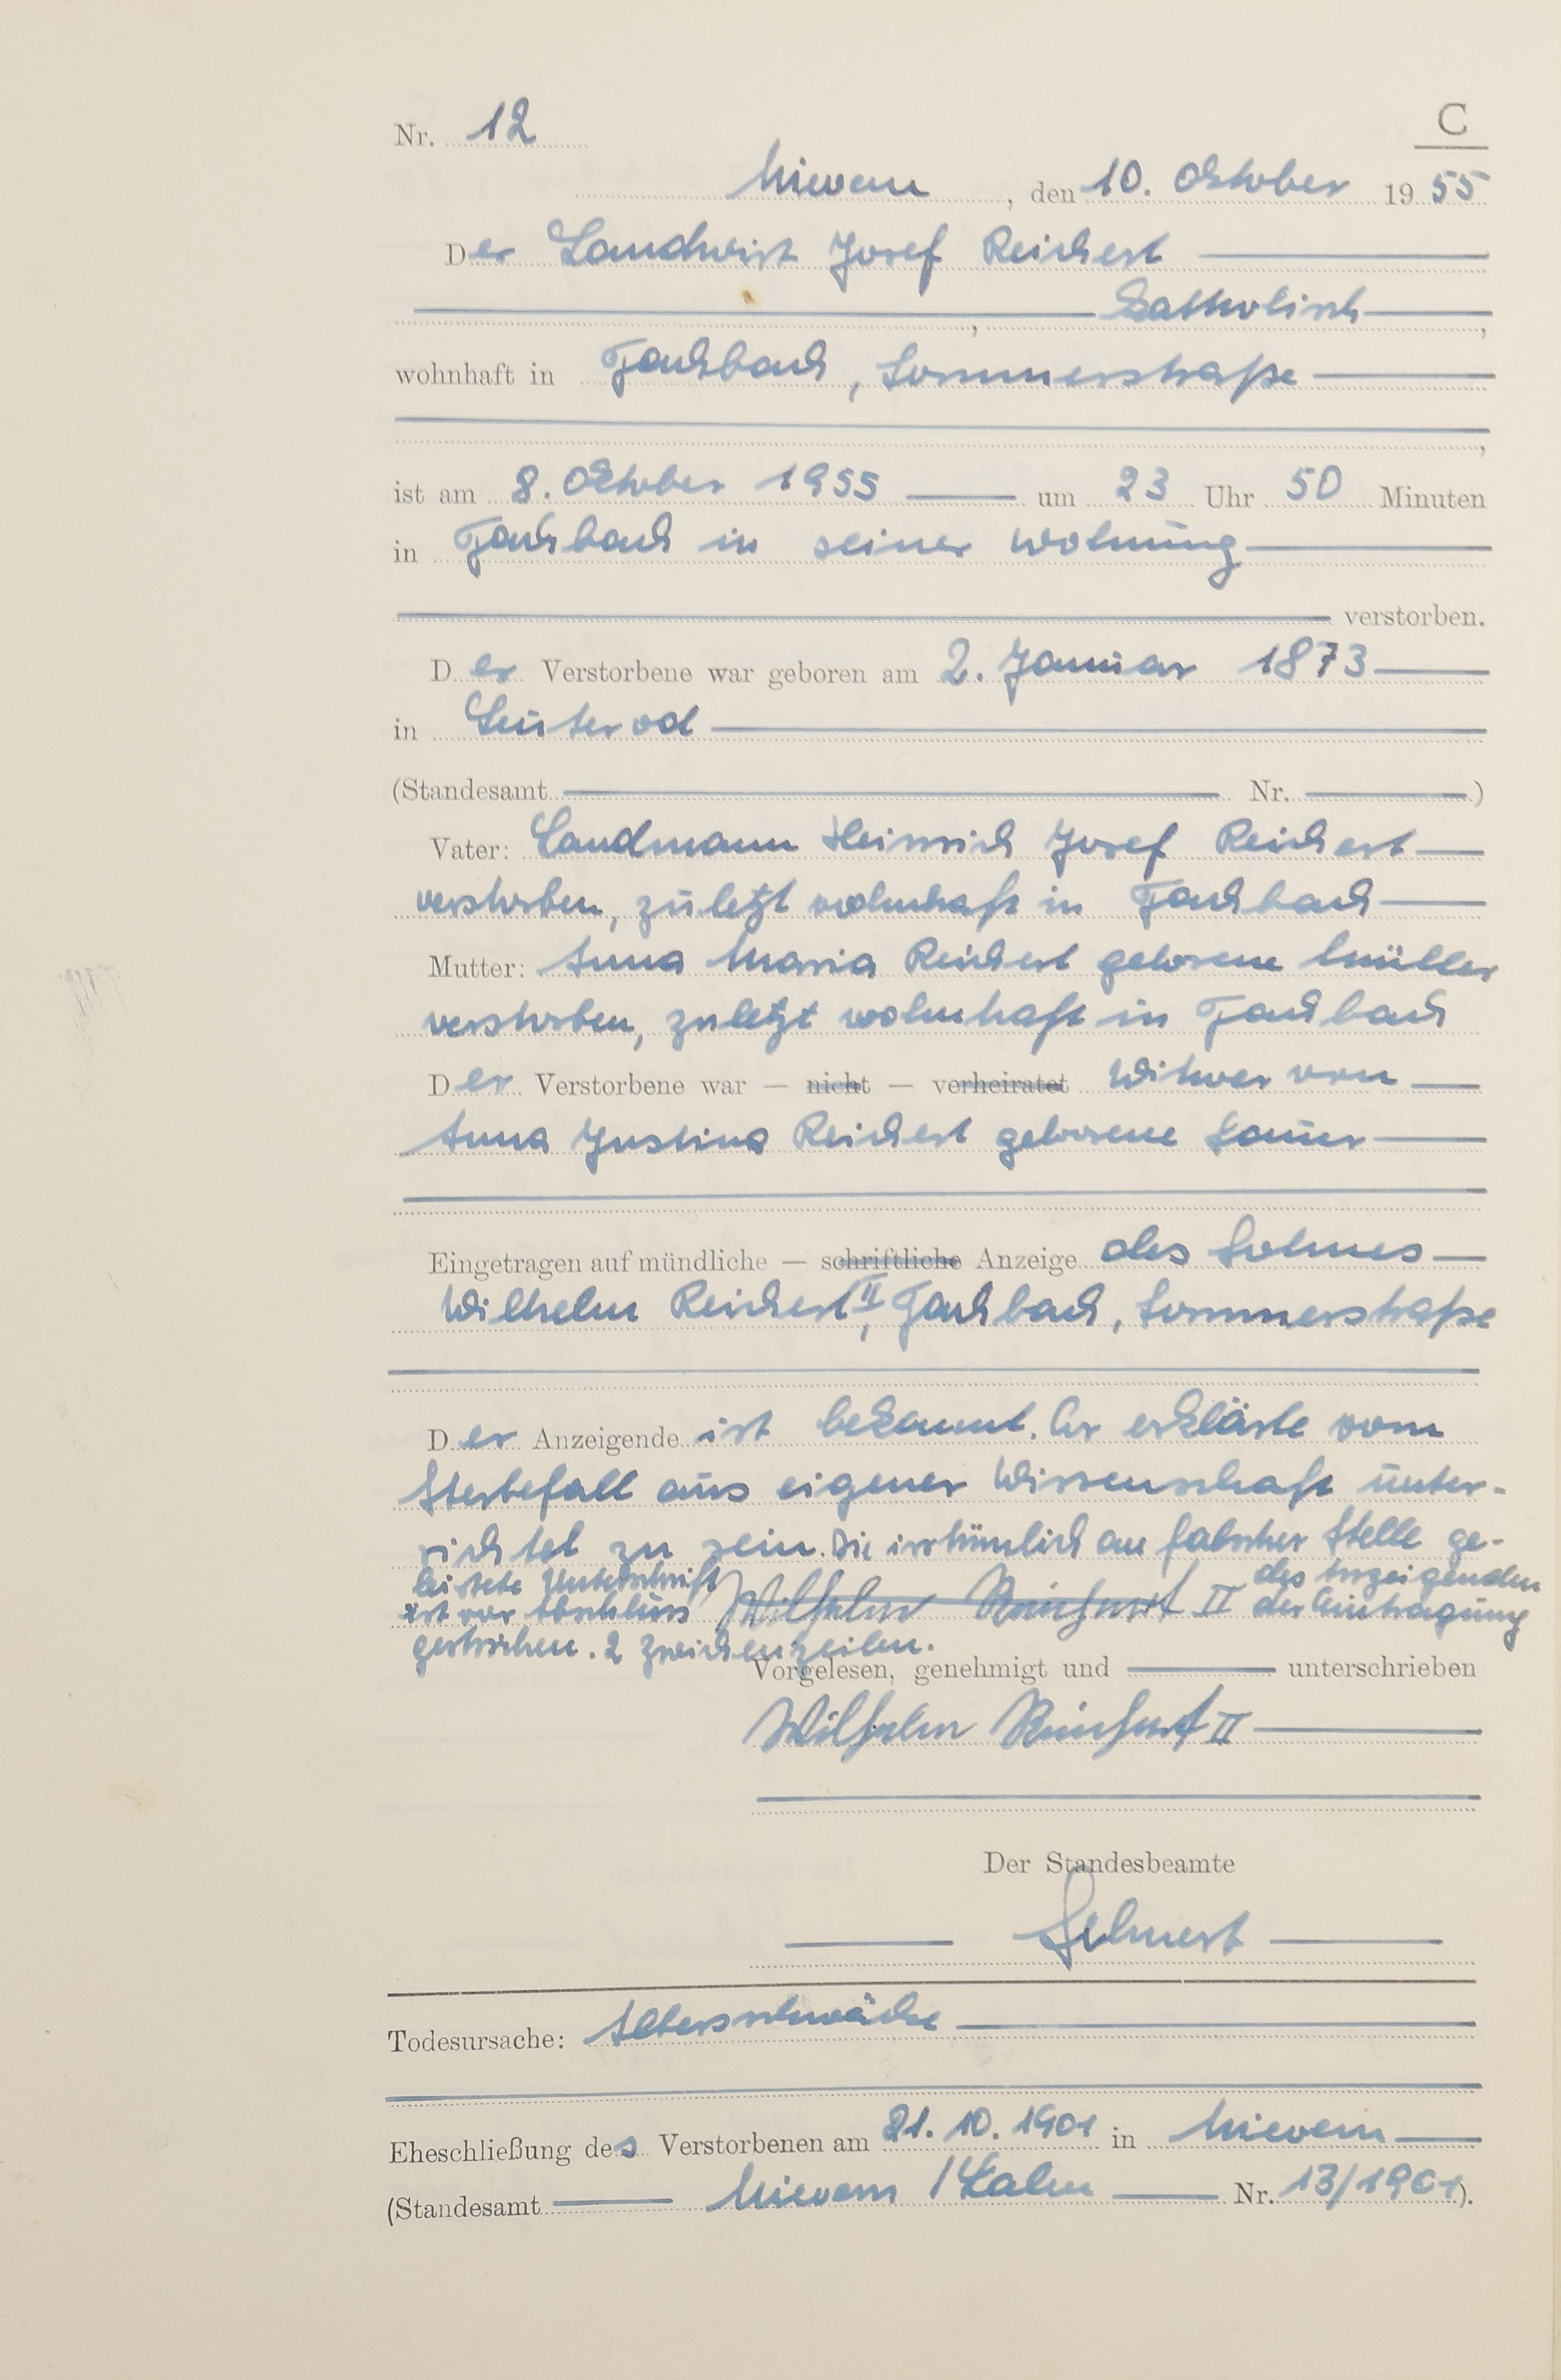 Nr. 12
C
Mievern, den 10. Oktober 1955
Der Landwirt Josef Reichert
katholisch,
wohnhaft in Fachbach, Sommerstraße
,
ist am 8. Oktober 1955 um 23 Uhr 50 Minuten
in Fachbach in seiner Wohnung
verstorben.
Der Verstorbene war geboren am 2. Januar 1873
in Leuterod
(Standesamt Nr. )
Vater: Landmann Heinrich Josef Reichert
verstorben, zuletzt wohnhaft in Fachbach
Mutter: Anna Maria Reichert geborene Müller
verstorben, zuletzt wohnhaft in Fachbach
Der Verstorbene war — nicht — verheiratet Witwer von
Anna Justina Reichert geborene Sauer
Eingetragen auf mündliche — schriftliche Anzeige des Sohnes
Wilhelm Reichert II, Fachbach, Sommerstraße
Der Anzeigende ist bekannt. Er erklärte vom
Sterbefall aus eigener Wissenschaft unter-
richtet zu sein. Die irrtümlich an falscher Stelle ge-
leistete Unterschrift des Anzeigenden
ist vor Abschluss Wilhelm Reichert II der Eintragung
gestrichen. 2 Zwischenzeilen.
Vorgelesen, genehmigt und unterschrieben
Wilhelm Reichert II
Der Standesbeamte
Todesursache: Altersschwäche
Eheschließung des Verstorbenen am 21. 10. 1901 in Mievern
(Standesamt Mievern / Lahn Nr. 13/1901).